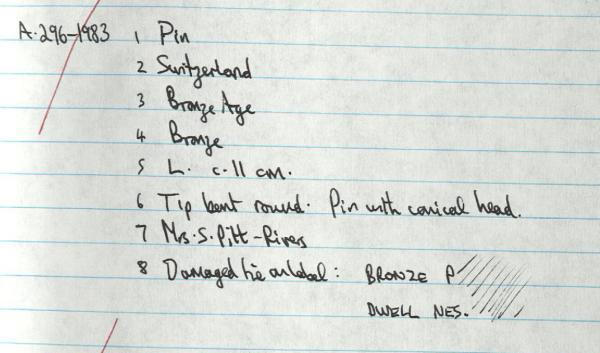 A.296-1983 1 Pin
2 Switzerland
3 Bronze Age
4 Bronze
5 L. c.11 cm.
6 Tip bent round. Pin with conical head.
7 Mrs. S. Pitt-Rivers
8 Damaged tie on label: BRONZE P
DWELL NES.